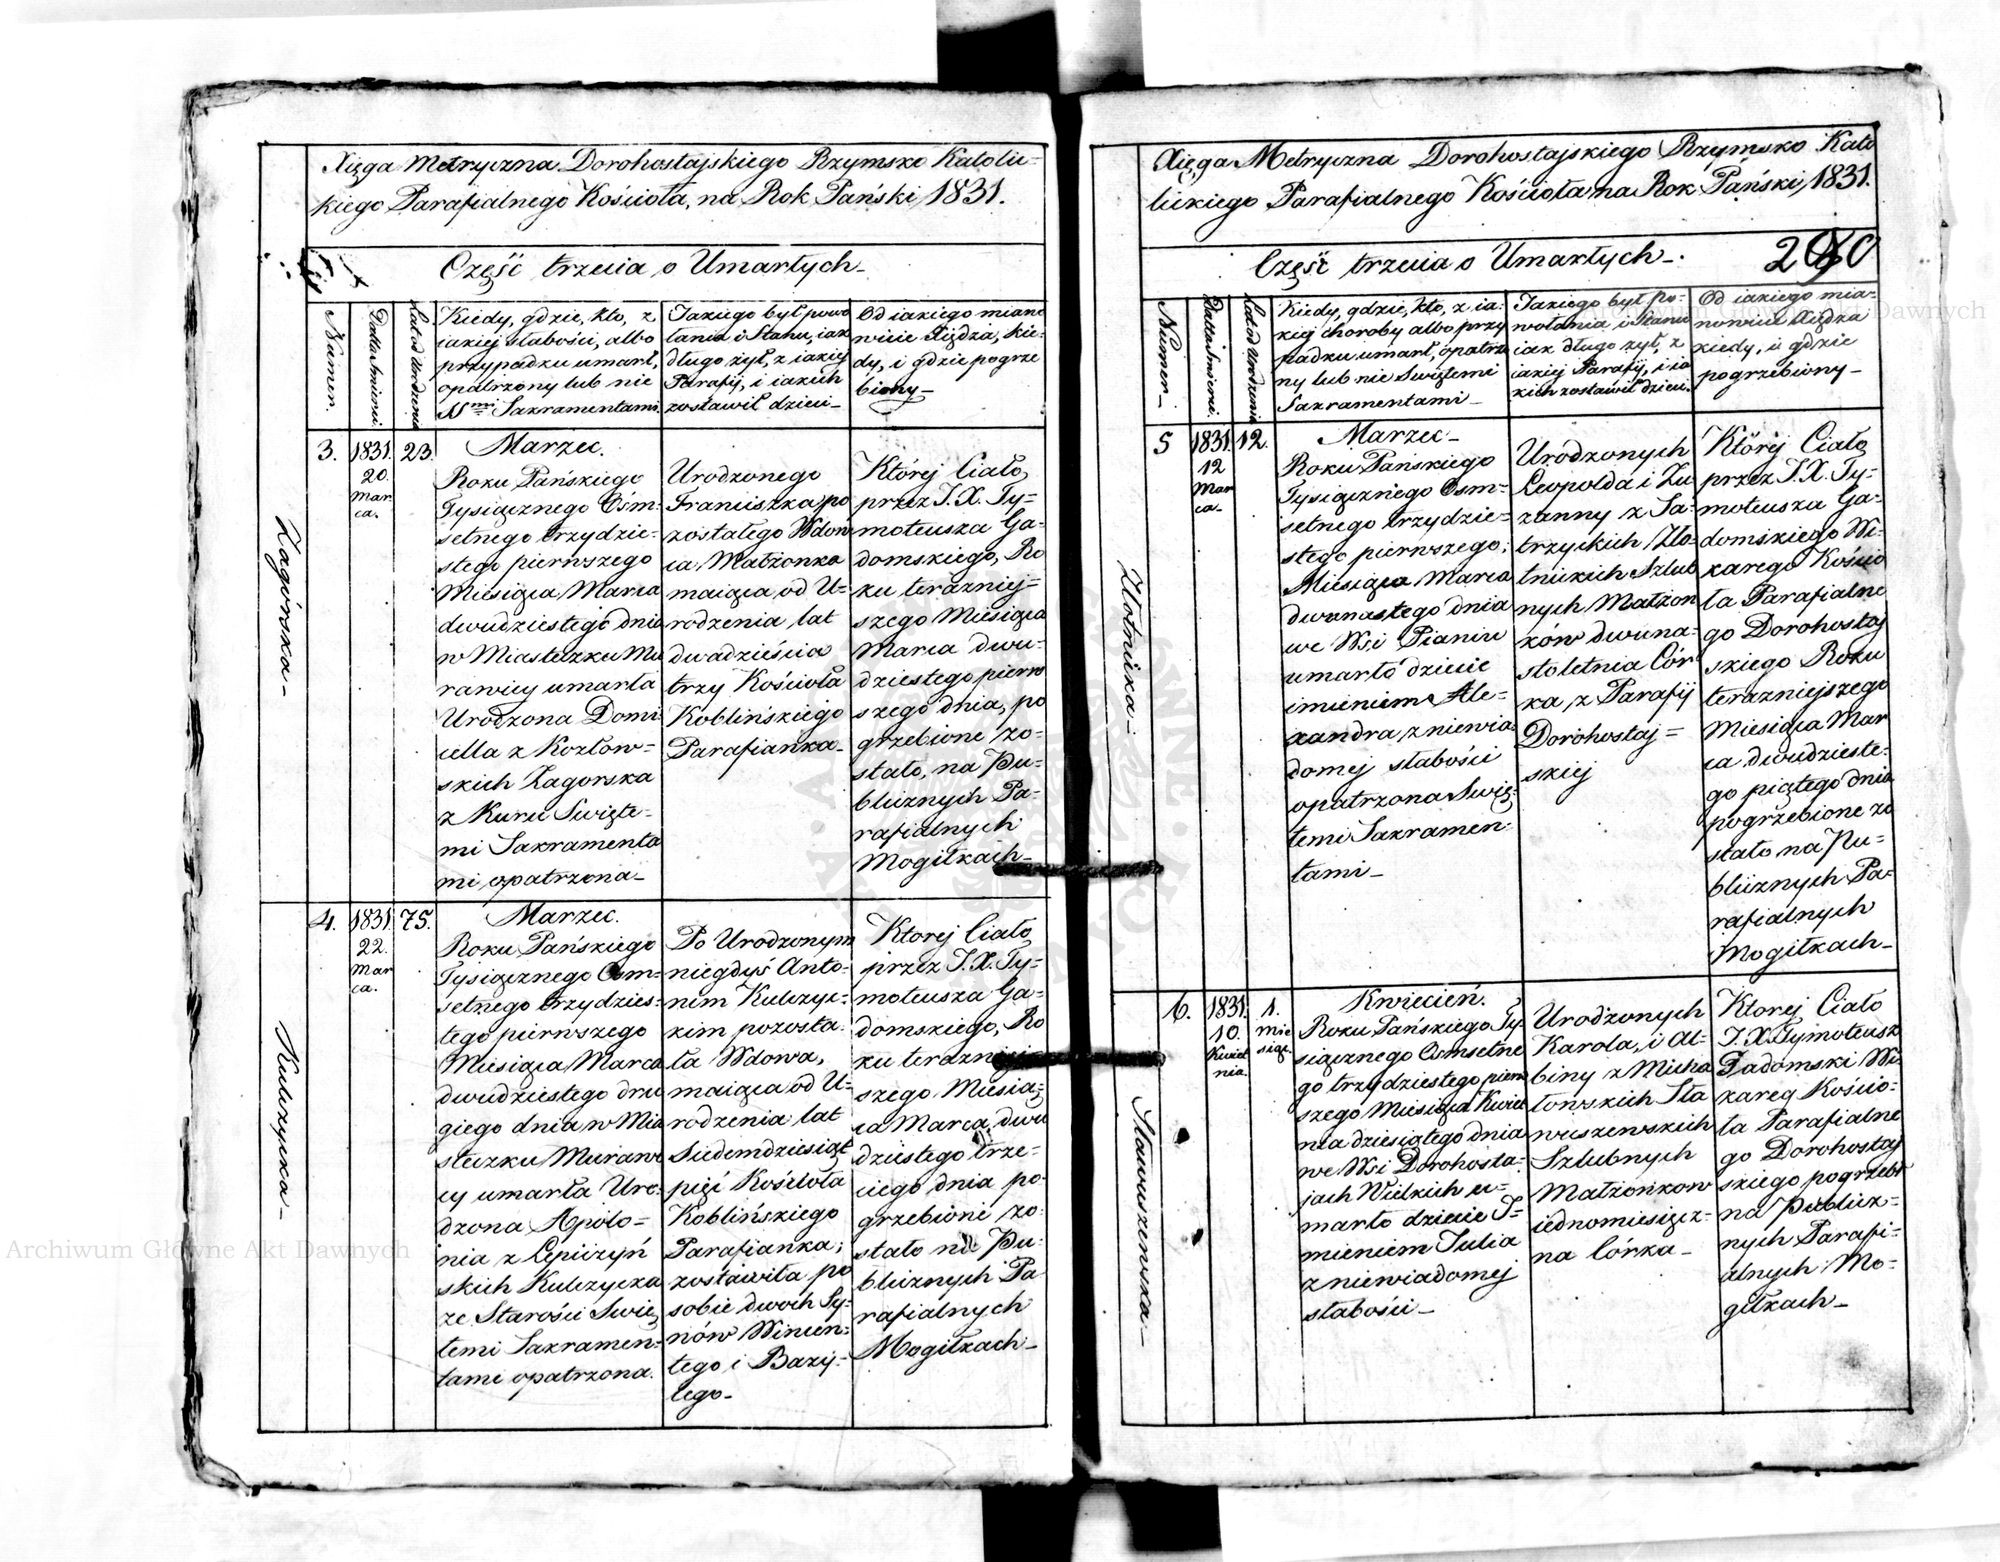 Xięga Metryczna Dorohostajskiego Rzymsko Katolic=
kiego Parafialnego Kościoła, na Rok Pański 1831.
Część trzecia o Umarłych_
Numer.
Datta Śmierci.
Lat od Urodzenia
Kiedy, gdzie, kto, z
iakiej słabości, albo
przypadku umarł,
opatrzony lub nie
SSmi Sakramentami.
Jakiego był powo
łania i Stanu, iak
długo żył, z iakiej
Parafij, i iakich
zostawił dzieci_
Od iakiego miano
wicie Xiędza, kie=
dy, i gdzie pogrze
biony_
Zagórska_
3.
1831.
20.
Mar
ca.
23.
Marzec.
Roku Pańskiego
Tysiącznego Ośm=
setnego trzydzie=
stego pierwszego
Miesiąca Marca
dwudziestego dnia
w Miasteczku Mu
rawicy umarła
Urodzona Domi
cella z Kozłow=
skich Zagorska
z Kuru Święte=
mi Sakramenta
mi opatrzona_
Urodzonego
Franciszka po
zostałego Wdow
ca Małżonka
maiąca od U=
rodzenia lat
dwadzieścia
trzy Kościoła
Koblińskiego
Parafianka_
Której Ciało
przez J. X. Ty=
moteusza Ga=
domskiego, Ro
ku teraźniej=
szego Miesiąca
Marca dwu=
dziestego pierw
szego dnia, po
grzebione zo=
stało, na Pu=
blicznych Pa=
rafialnych
Mogiłkach_
Kulczycka_
4.
1831.
22.
Mar
ca.
75.
Marzec.
Roku Pańskiego
Tysiącznego Osm=
setnego trzydzies=
tego pierwszego
Miesiąca Marca
dwudziestego dru
giego dnia w Mia
steczku Murawi
cy umarła Uro=
dzona Apolo=
nia z Lepiizyń
skich Kulczycka
ze Starości Swię
temi Sakramen=
tami opatrzona.
Po Urodzonym
niegdyś Anto=
nim Kulczyc=
kim pozosta=
ła Wdowa,
maiąca od U=
rodzenia lat
Siedemdziesiąt
pięć Kościoła
Koblińskiego
Parafianka;
zostawiła po
sobie dwóch Sy=
nów Wincen=
tego i Bazy=
lego_
Ktorej Ciało
przez J. X. Ty=
moteusza Ga=
domskiego, Ro
ku teraźniej=
szego Miesią=
ca Marca, dwu
dziestego trze=
ciego dnia po=
grzebioni zo=
stało na Pu=
blicznych Pa
rafialnych
Mogiłkach_
Xięga Metryczna Dorohostajskiego Rzymsko Kato
lickiego Parafialnego Kościoła na Rok Pański 1831.
Część trzecia o Umarłych_.
Numer_
Datta Śmierci.
Lat od Urodzenia
Kiedy, gdzie, kto, z ia=
kiej choroby albo przy
padku umarł, opatrzo
ny lub nie Swiętemi
Sakramentami_
Jakiego był po=
wołania i Stanu
iak długo żył, z
iakiej Parafij, i ia
kich zostawił dzieci.
Od iakiego mia=
nowicie Xiędza
kiedy, i gdzie
pogrzebiony_
Złotnicka_
5
1831.
12
Mar
ca_
12.
Marzec_
Roku Pańskiego
Tysiącznego Osm=
setnego trzydzie=
stego pierwszego;
Miesiąca Marca
dwunastego dnia
we Wsi Pianiu
umarło dziecie
imieniem Ale=
xandra, z niewia
domej słabości
opatrzona Swię=
temi Sakramen=
tami_
Urodzonych
Leopolda i Zu
zanny z Za=
trzyckich Zło=
tnickich Szlub
nych Małżon
ków dwuna=
stoletnia Cór
ka, z Parafij
Dorohostaj=
skiej
Której Ciało
przez J. X. Ty=
moteusza Ga=
domskiego Wi=
karego Kościo
ła Parafialne
go Dorohostaj
skiego Roku
teraźniejszego
Miesiąca Mar
ca dwudzieste=
go piątego dnia
pogrzebione zo
stało na Pu=
blicznych Pa=
rafialnych
Mogiłkach_
Stawuszewska_
6.
1831.
10.
Kwiet
nia.
1.
mie
siąc.
Kwiecień.
Roku Pańskiego Ty
siącznego Osmsetne
go trzydziestego pierw
szego Miesiąca Kwiet
nia dziesiątego dnia
we Wsi Dorohosta=
jach Wielkich u=
marło dziecie I=
mieniem Julia
z niewiadomej
słabości_
Urodzonych
Karola, i Al=
biny z Micha
łowskich Sta
wuszewskich
Szlubnych
Małżonkow
iednomiesięcz=
na Córka_
Ktorej Ciało
J. X. Tymoteusz
Gadomski Wi
kareg Kościo=
ła Parafialne
go Dorohostaj
skiego pogrzebł
na Publicz=
nych Parafi=
alnych Mo=
giłkach_
Archiwum Główne Akt Dawnych
Archiwum Główne Akt Dawnych